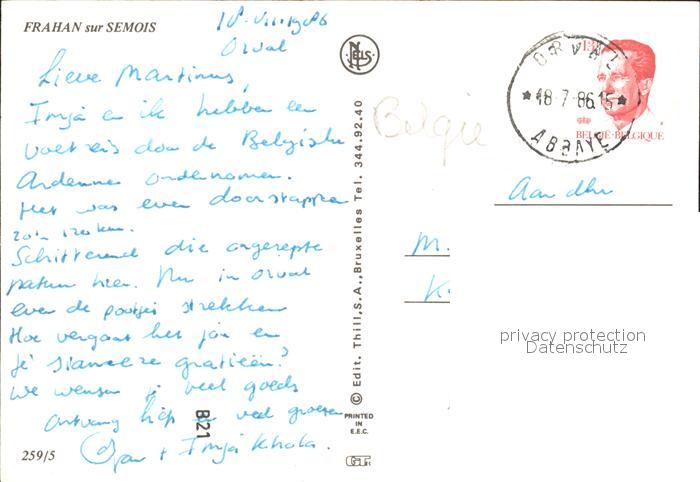 FRAHAN sur SEMOIS
18-VII-1986
Orval
Lieve Martinus,
en ik hebben een
voetreis door de Belgische
Ardennen ondernomen.
Het was even doorstappen
zo'n 120 km.
Schitterend die ongerepte
natuur hier. Nu in Orval
even de pootjes strekken
Hoe vergaat het jou en
je gratieën?
We wensen je veel goeds
ontvang veel groeten
+ Khala.
259/5
B21
NELS
© Edit. Thill, S.A., Bruxelles Tel. 344.92.40
PRINTED
IN
E.E.C.
België
ORVAL
18-7-86 15
ABBAYE
13
BELGIË-BELGIQUE
Aan dhr
M.
K.
privacy protection
Datenschutz